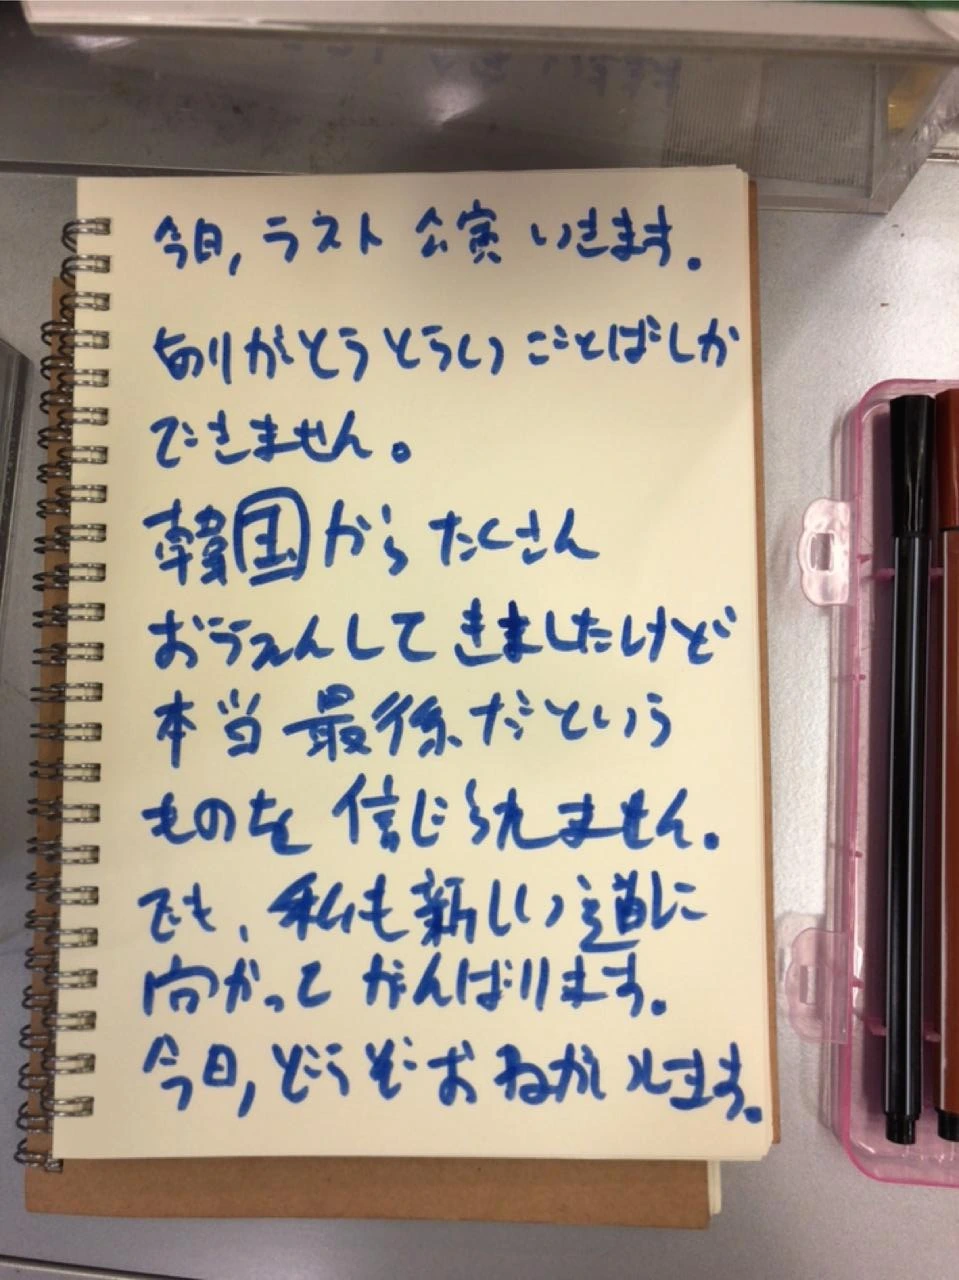 今日, ラスト 公演 いきます。
ありがとうとうしい ことばしか
できません。
韓国から たくさん
おうえんして きましたけど
本当 最後だという
ものを 信じられません。
でも、私も新しい道に
向かって がんばります。
今日, どうぞ おねがいします。